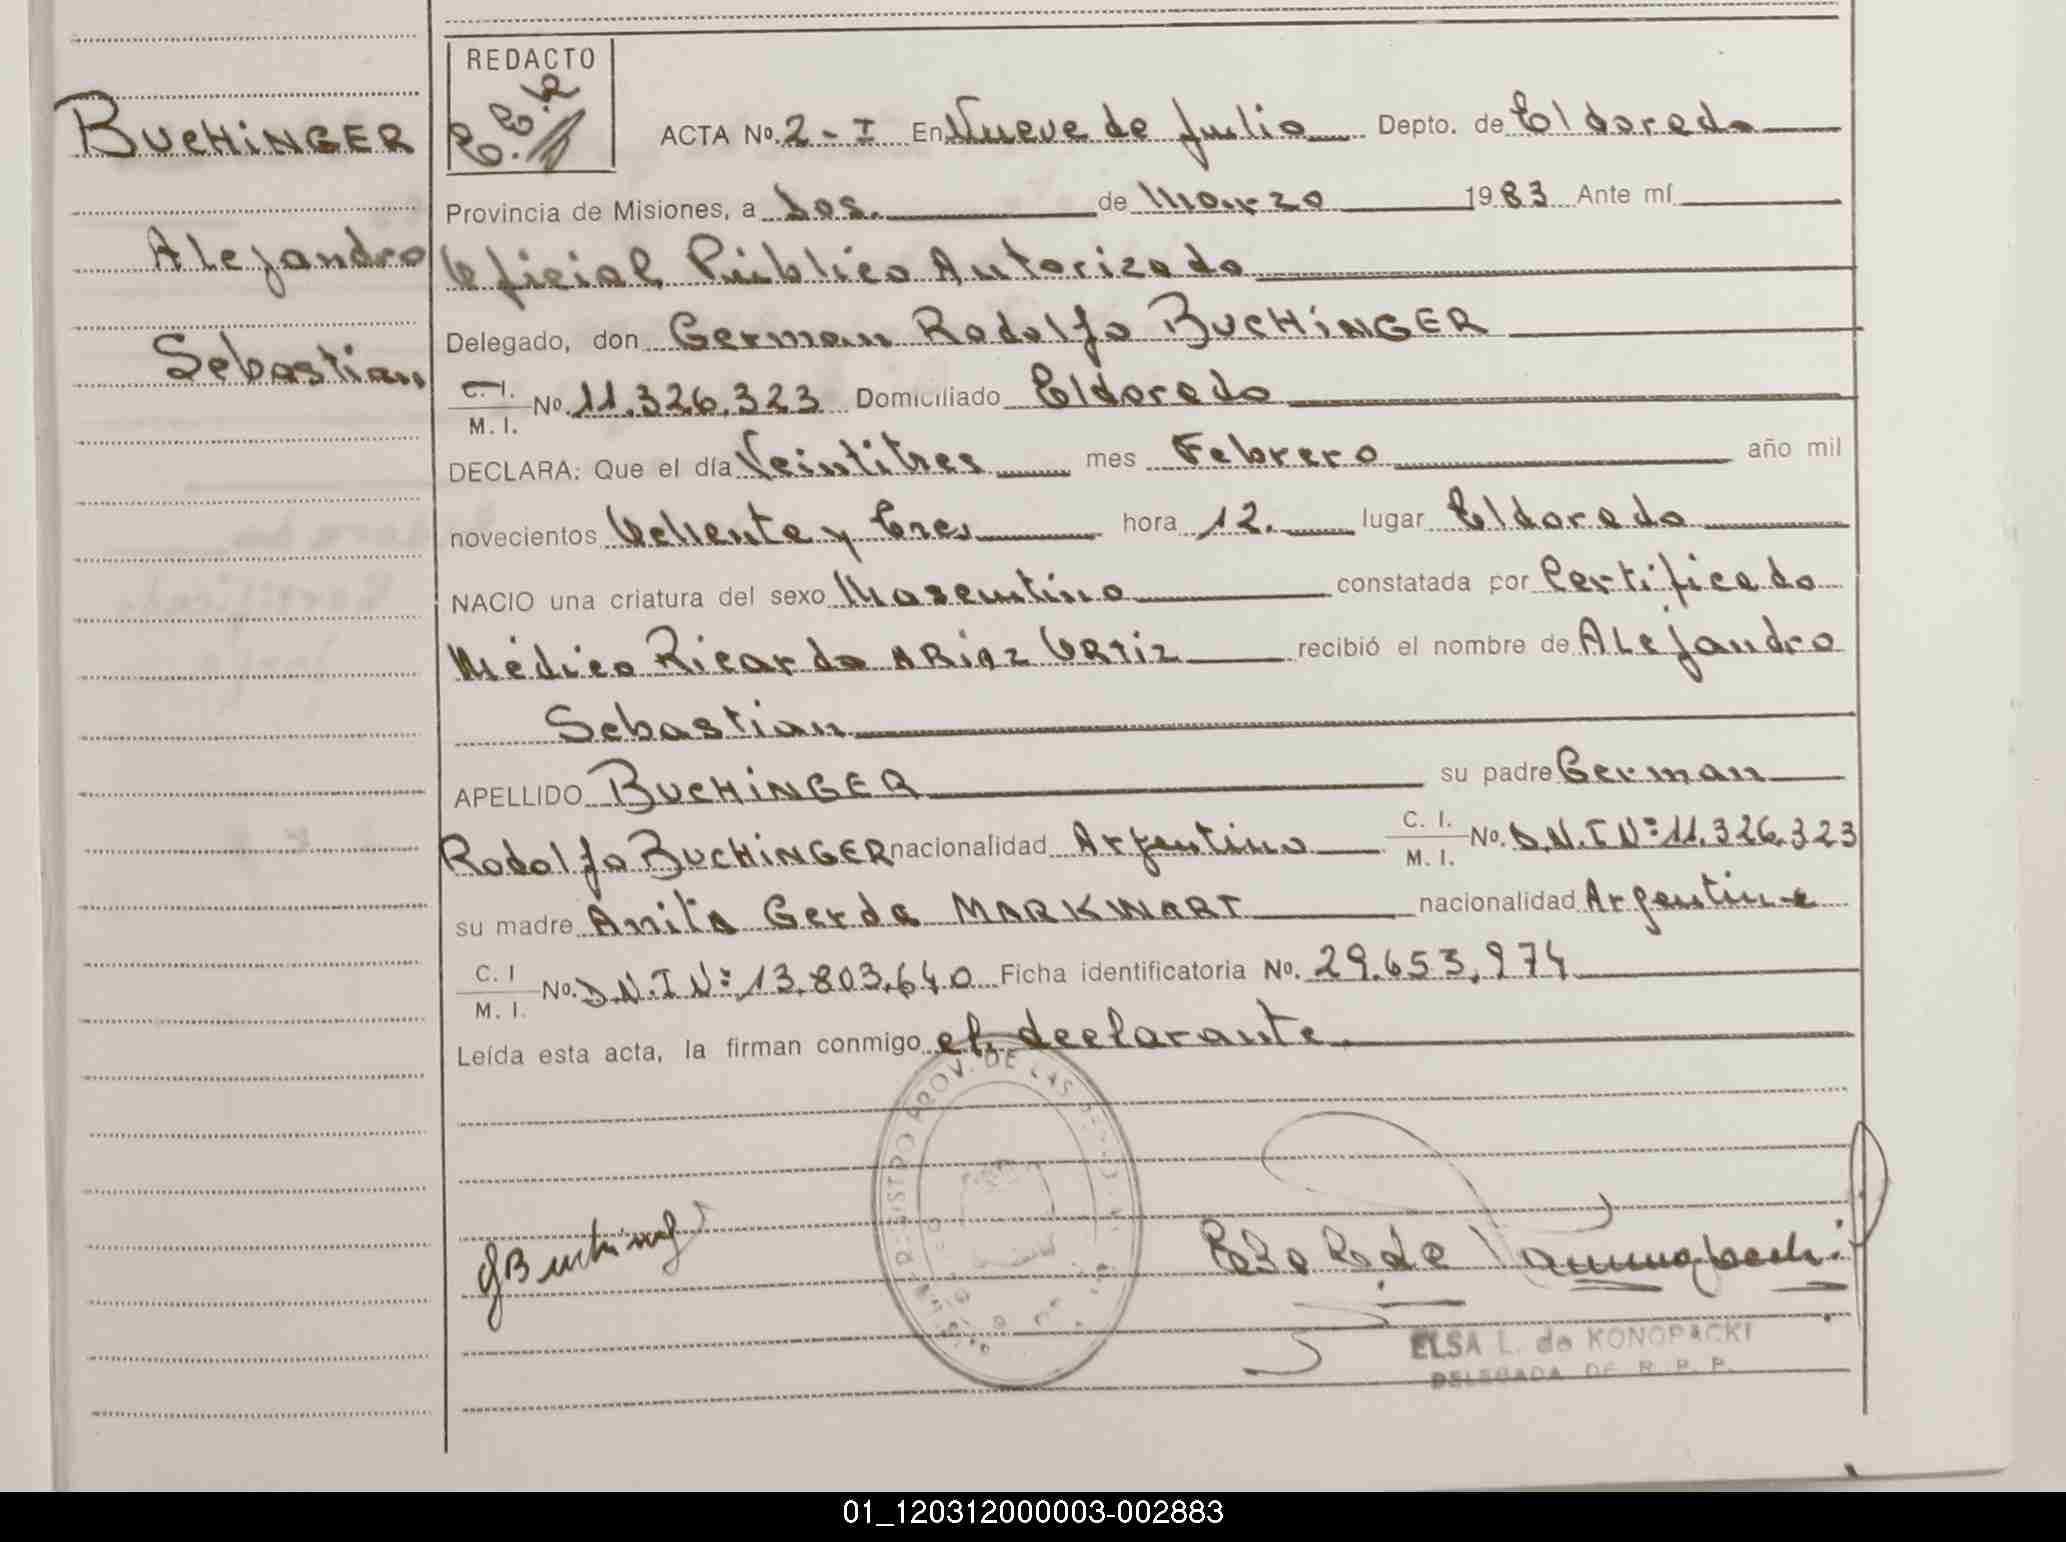 REDACTO
BUCHiNGER
ACTA No. 2 - I En Nueve de Julio Depto. de Eldorado
Provincia de Misiones, a Dos. de Marzo 1983 Ante mí
Alejandro
Oficial Público Autorizado
Sebastian
Delegado, don German Rodolfo BUCHiNGER
C. I.
M. I.
No. 11.326.323 Domiciliado Eldorado
DECLARA: Que el día Veintitres mes Febrero año mil
novecientos Ochenta y tres hora 12. lugar Eldorado
NACIO una criatura del sexo Masculino constatada por Certificado
Médico Ricardo ARiaz ORTiz recibió el nombre de Alejandro
Sebastian
APELLIDO BUCHiNGER su padre German
Rodolfo BUCHiNGER nacionalidad Argentino C. I.
M. I. No. D.N.I Nº 11.326.323
su madre Anita Gerda MARKWART nacionalidad Argentina
C. I
M. I. No. D.N.I Nº 13.803.640 Ficha identificatoria No. 29.653.974
Leída esta acta, la firman conmigo el declarante
ELSA L. de KONOPACKI
DELEGADA DE R. P. P.
01_120312000003-002883